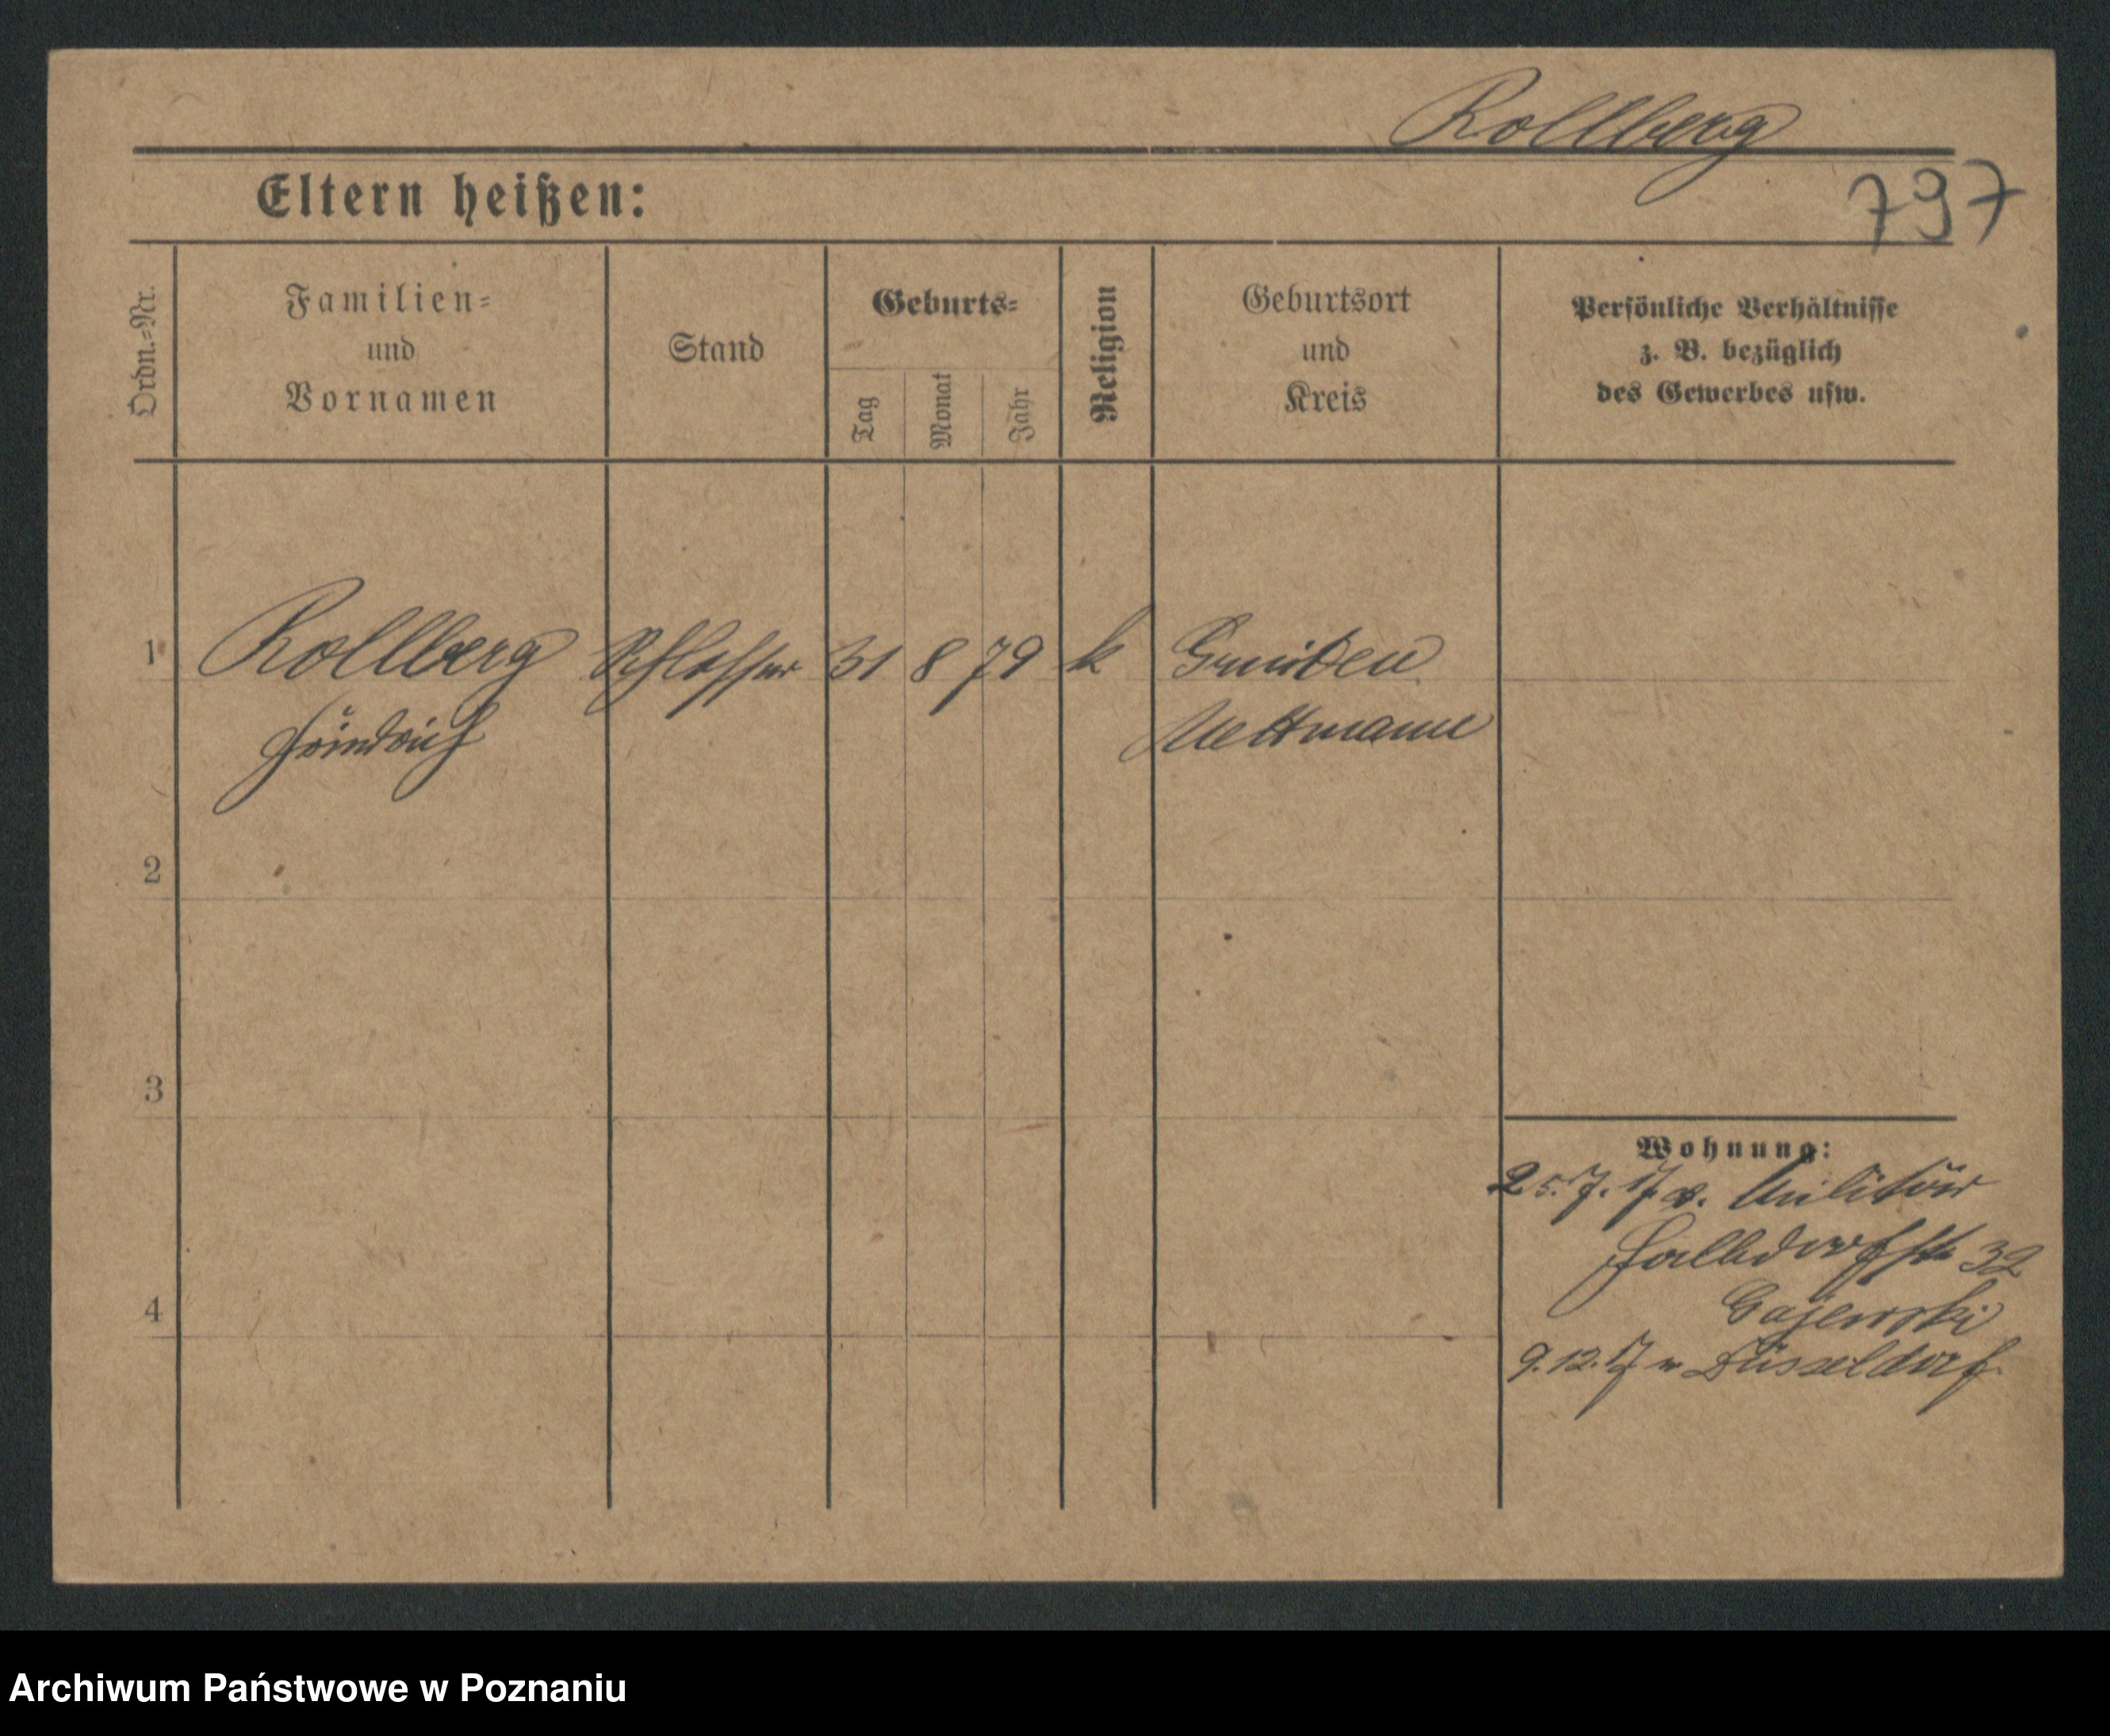 Rollberg
797
Eltern heißen:
Ordn.=Nr.
Familien=
und
Vornamen
Stand
Geburts=
Tag
Monat
Jahr
Religion
Geburtsort
und
Kreis
Persönliche Verhältnisse
z. B. bezüglich
des Gewerbes usw.
1
Rollberg Schlosser 31 8 79 k Gruiten
Friedrich Mettmann
2
3
4
Wohnung:
25.7.17 v. Militär
32
Gajewski
9.12.17 n Düsseldorf
Archiwum Państwowe w Poznaniu